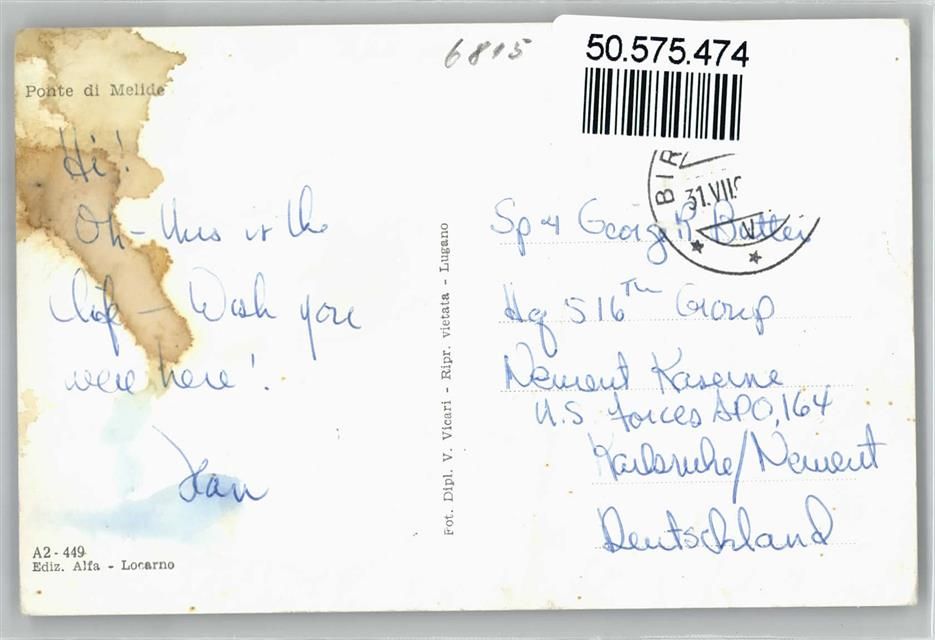 6815
50.575.474
Ponte di Melide
Hi!
Oh - this is the
life - Wish you
were here!
Jan
A2 - 449
Ediz. Alfa - Locarno
Fot. Dipl. V. Vicari - Ripr. vietata - Lugano
BIR
31.VII
Sp 4 George R.
Hq 516th Group
Neureut Kaserne
U.S. Forces APO, 164
Karlsruhe/Neureut
Deutschland